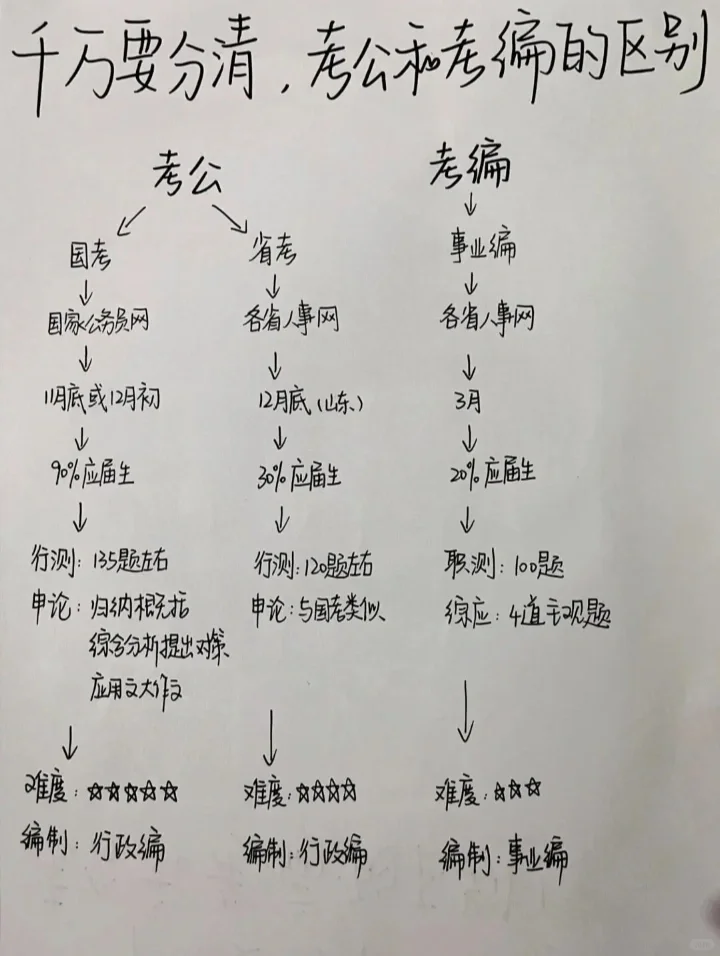 千万要分清，考公和考编的区别
考公
国考
国家公务员网
11月底或12月初
90%应届生
行测：135题左右
申论：归纳概括
综合分析提出对策
应用文大作文
难度：☆☆☆☆☆
编制：行政编
省考
各省人事网
12月底（山东）
30%应届生
行测：120题左右
申论：与国考类似
难度：☆☆☆☆
编制：行政编
考编
事业编
各省人事网
3月
20%应届生
职测：100题
综应：4道主观题
难度：☆☆☆
编制：事业编